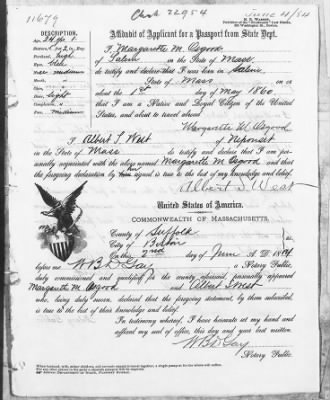 11679
Chk 22954
June 4/84
DESCRIPTION.
Age, 24
Stature, 5
Forehead, high
Eyes,
Nose, medium
Hair, light
Face, medium
Affidavit of Applicant for a Passport from State Dept.
I, Margarette M. Osgood
of Salem in the State of Mass
do testify and declare that I was born in Salem
State of Mass on or
about the 1st day of May 1860,
that I am a Native and Loyal Citizen of the United
States, and about to travel abroad
Margarette M. Osgood
I Albert S. West of Neponset
in the State of Mass do testify and declare that I am per-
sonally acquainted with the above named Margarette M. Osgood and that
the foregoing declaration by her is true to the best of my knowledge and belief.
Albert S. West
United States of America.
COMMONWEALTH OF MASSACHUSETTS.
County of Suffolk
City of Boston
On the 2nd day of June A. D. 1884
before me W B D Gay, a Notary Public,
duly commissioned and qualified for the county aforesaid, personally appeared
Margarette M. Osgood and Albert S West
who, being duly sworn, declared that the foregoing statement, by them subscribed,
is true to the best of their knowledge and belief.
In testimony whereof, I have hereunto set my hand and
official my seal of office, this day and year last written.
W B D Gay
Notary Public.